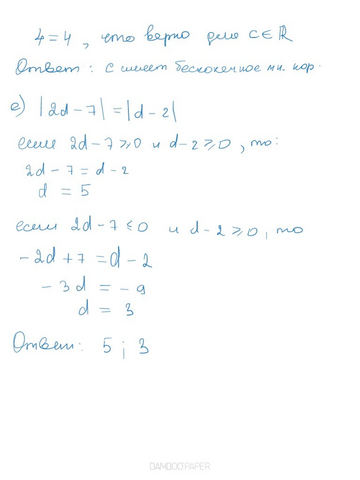 4=4, что верно для C∈R
Ответ: с имеет бесконечное мн. кор.
е) |2d-7|=|d-2|
если 2d-7≥0 и d-2≥0, то:
2d-7=d-2
d = 5
если 2d-7≤0 и d-2≥0, то
-2d+7=d-2
-3d = -9
d = 3
Ответ: 5; 3
BAMBOO PAPER